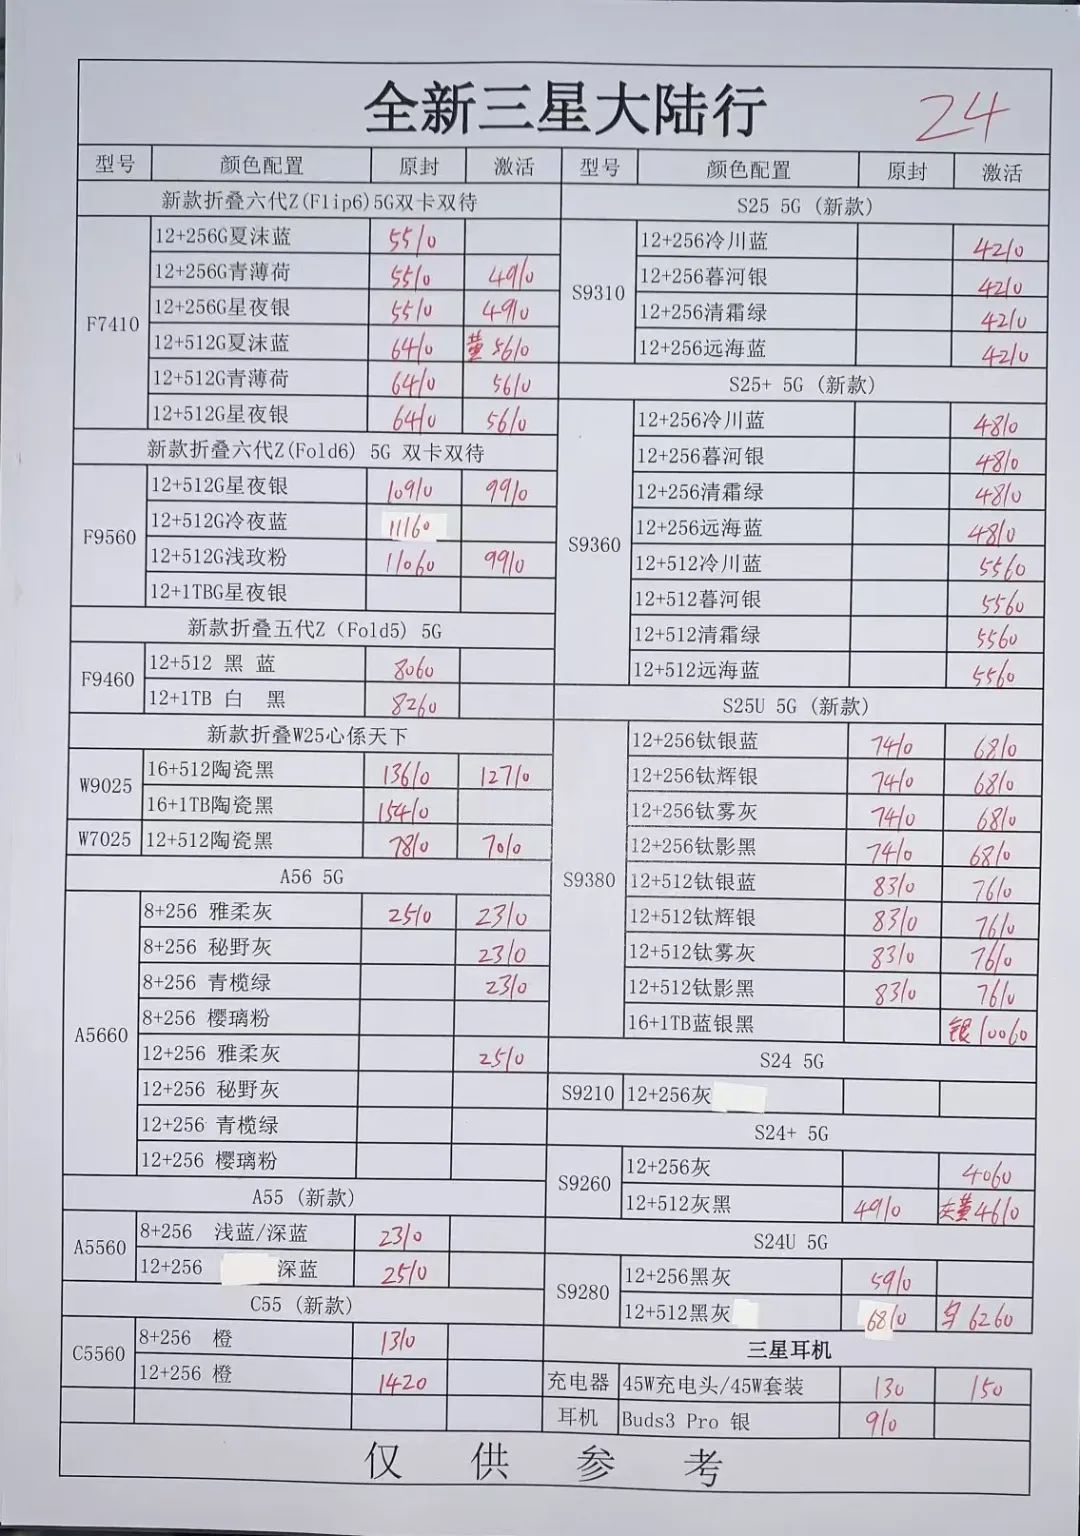 全新三星大陆行
24
型号 颜色配置 原封 激活
新款折叠六代Z(Flip6)5G双卡双待
F7410
12+256G夏沫蓝 5510
12+256G青薄荷 5510 4910
12+256G星夜银 5510 4910
12+512G夏沫蓝 6410 黄 5610
12+512G青薄荷 6410 5610
12+512G星夜银 6410 5610
新款折叠六代Z(Fold6) 5G 双卡双待
F9560
12+512G星夜银 10910 9910
12+512G冷夜蓝 11160
12+512G浅玫粉 11060 9910
12+1TBG星夜银
新款折叠五代Z（Fold5）5G
F9460
12+512 黑 蓝 8060
12+1TB 白 黑 8260
新款折叠W25心係天下
W9025
16+512陶瓷黑 13610 12710
16+1TB陶瓷黑 15410
W7025 12+512陶瓷黑 7810 7010
A56 5G
A5660
8+256 雅柔灰 2510 2310
8+256 秘野灰 2310
8+256 青榄绿 2310
8+256 樱璃粉
12+256 雅柔灰 2510
12+256 秘野灰
12+256 青榄绿
12+256 樱璃粉
A55 (新款)
A5560
8+256 浅蓝/深蓝 2310
12+256 深蓝 2510
C55 (新款)
C5560
8+256 橙 1310
12+256 橙 1420
型号 颜色配置 原封 激活
S25 5G (新款)
S9310
12+256冷川蓝 4210
12+256暮河银 4210
12+256清霜绿 4210
12+256远海蓝 4210
S25+ 5G (新款)
S9360
12+256冷川蓝 4810
12+256暮河银 4810
12+256清霜绿 4810
12+256远海蓝 4810
12+512冷川蓝 5560
12+512暮河银 5560
12+512清霜绿 5560
12+512远海蓝 5560
S25U 5G (新款)
S9380
12+256钛银蓝 7410 6810
12+256钛辉银 7410 6810
12+256钛雾灰 7410 6810
12+256钛影黑 7410 6810
12+512钛银蓝 8310 7610
12+512钛辉银 8310 7610
12+512钛雾灰 8310 7610
12+512钛影黑 8310 7610
16+1TB蓝银黑 银 10060
S24 5G
S9210 12+256灰
S24+ 5G
S9260
12+256灰 4060
12+512灰黑 4910 灰黄 4610
S24U 5G
S9280
12+256黑灰 5910
12+512黑灰 6810 6260
三星耳机
充电器 45W充电头/45W套装 130 150
耳机 Buds3 Pro 银 910
仅供参考